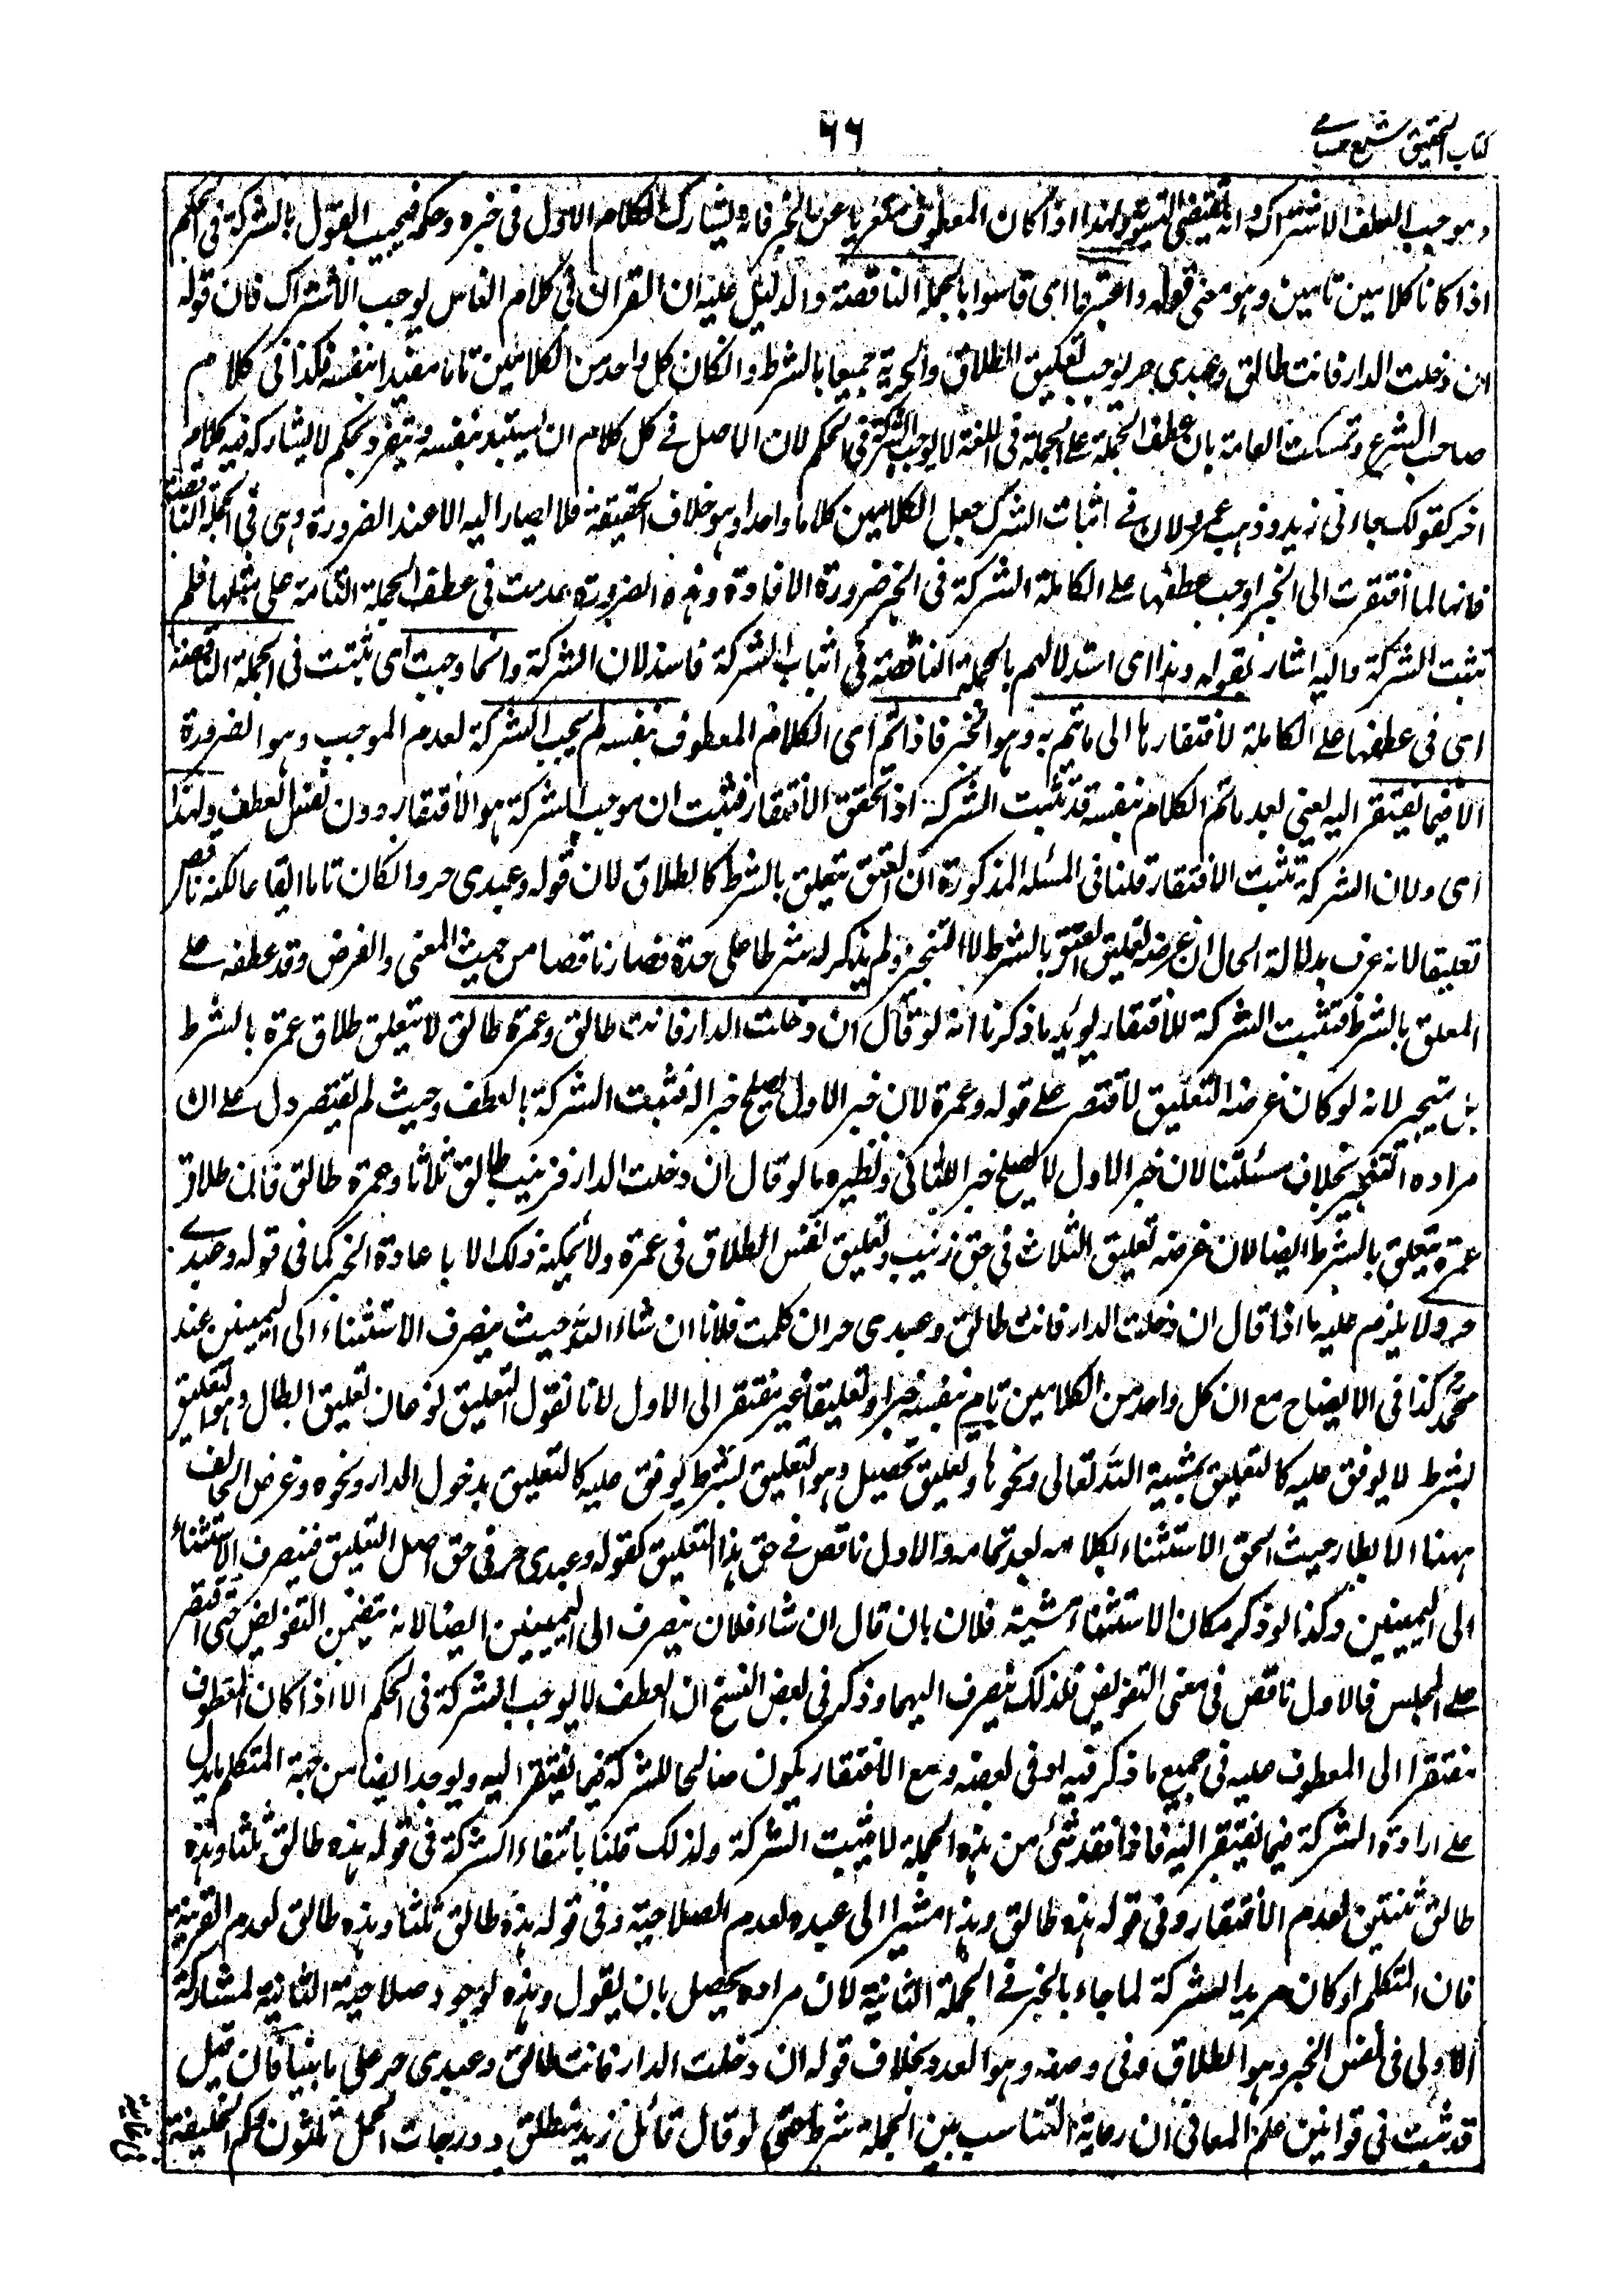 كتاب التحقيق شرح حسامى
٦٦
وموجب العطف الاشتراك وانه يقتضى التسوية ولهذا اذا كان المعطوف متعريا عن الخبر فانه يشارك الكلام الاول فى خبره وحكمه فيجب القول بالشركة فى الحكم
اذا كانا كلامين تامين وهو معنى قوله واعتبروا اى قاسوا بالجملة الناقصة والدليل عليه ان القران فى كلام الناس يوجب الاشتراك فان قوله
ان دخلت الدار فانت طالق وعبدى حر يوجب تعليق الطلاق والحرية جميعا بالشرط وانكان كل واحد من الكلامين تاما مفيدا بنفسه فكذا فى كلام
صاحب الشرع وتمسكت العامة بان عطف الجملة على الجملة فى اللغة لا يوجب الشركة فى الحكم لان الاصل فى كل كلام ان يستبد بنفسه ويتفرد بحكم لا يشاركه فيه كلام
اخر كقولك جاءنى زيد وذهب عمرو ولان فى اثبات الشركة جعل الكلامين كلاما واحدا وهو خلاف الحقيقة فلا يصار اليه الا عند الضرورة وهى فى الجملة الناقصة
فانها لما افتقرت الى الخبر اوجب عطفها على الكاملة الشركة فى الخبر ضرورة الافادة وهذه الضرورة عدمت فى عطف الجملة التامة على مثلها فلم
تثبت الشركة واليه اشار بقوله وهذا اى استدلالهم بالجملة الناقصة فى اثبات الشركة فاسد لان الشركة وانما وجبت اى تثبت فى الجملة الناقصة
اى فى عطفها على الكاملة لافتقارها الى ما تتم به وهو الخبر فاذا تم اى الكلام المعطوف بنفسه لم يجب الشركة لعدم الموجب وهو الضرورة
الا فيما يفتقر اليه يعنى بعد ما تم الكلام بنفسه قد تثبت الشركة اذا تحقق الافتقار فثبت ان موجب الشركة هو الافتقار دون نفس العطف ولهذا
اى ولان الشركة تثبت للافتقار قلنا فى المسئلة المذكورة ان العتق يتعلق بالشرط كالطلاق لان قوله وعبدى حر وانكان تاما ايقاعا لكنه ناقص
تعليقا لانه عرف بدلالة الحال ان غرضه تعليق العتق بالشرط لا التنجيز ولم يذكر له شرطا على حدة فصار ناقصا من حيث المعنى والغرض وقد عطفه على
المعلق بالشرط فتثبت الشركة للافتقار يؤيد ما ذكرنا انه لو قال ان دخلت الدار فانت طالق وعمرة طالق لا يتعلق طلاق عمرة بالشرط
بل يتنجز لانه لو كان غرضه التعليق لاقتصر على قوله وعمرة لان خبر الاول يصلح خبرا له فثبتت الشركة بالعطف وحيث لم يقتصر دل على ان
مراده التنجيز بخلاف مسئلتنا لان خبر الاول لا يصلح خبرا للثانى ونظيره ما لو قال ان دخلت الدار فزينب طالق ثلاثا وعمرة طالق فان طلاق
عمرة يتعلق بالشرط ايضا لان غرضه تعليق الثلاث فى حق زينب وتعليق نفس الطلاق فى عمرة ولا يمكنه ذلك الا باعادة الخبر كما فى قوله وعبدى
حر ولا يلزم عليه ما اذا قال ان دخلت الدار فانت طالق وعبدى حر ان كلمت فلانا ان شاء الله حيث ينصرف الاستثناء الى اليمينين عند
محمد كذا فى الايضاح مع ان كل واحد من الكلامين تام بنفسه خبرا وتعليقا غير مفتقر الى الاول لانا نقول التعليق نوعان تعليق ابطال وهو التعليق
بشرط لا يوقف عليه كالتعليق بمشية الله تعالى ونحوها وتعليق تحصيل وهو التعليق بشرط يوقف عليه كالتعليق بدخول الدار ونحوه وغرض الحالف
ههنا الابطال حيث الحق الاستثناء بكلامه بعد تمامه والاول ناقص فى حق هذا التعليق كقوله وعبدى حر فى حق اصل التعليق فينصرف الاستثناء
الى اليمينين وكذا لو ذكر مكان الاستثناء مشية فلان بان قال ان شاء فلان ينصرف الى اليمينين ايضا لانه يتضمن التفويض حتى اقتصر
على المجلس فالاول ناقص فى معنى التفويض فلذلك ينصرف اليهما وذكر فى بعض النسخ ان العطف لا يوجب الشركة فى الحكم الا اذا كان المعطوف
مفتقرا الى المعطوف عليه فى جميع ما ذكر فيه او فى بعضه ومع الافتقار يكون صالحا للشركة فيما يفتقر اليه ويوجد ايضا من جهة المتكلم ما يدل
على ارادة الشركة فيما يفتقر اليه فاذا فقد شئ من هذه الجملة لا يثبت الشركة ولذلك قلنا بانتفاء الشركة فى قوله هذه طالق ثلثا وهذه
طالق ثنتين لعدم الافتقار وفى قوله هذه طالق وهذا مشيرا الى عبده لعدم الصلاحية وفى قوله هذه طالق ثلثا وهذه طالق لعدم القرينة
فان المتكلم لو كان مريد الشركة لما جاء بالخبر فى الجملة الثانية لان مراده يحصل بان يقول وهذه لوجود صلاحية الثانية لمشاركة
الاولى فى نفس الخبر وهو الطلاق وفى وصفه وهو العدد بخلاف قوله ان دخلت الدار فانت طالق وعبدى حر على ما بينا فان قيل
قد ثبت فى قوانين علم المعانى ان رعاية التناسب بين الجملة شرط حتى لو قال قائل زيد منطلق ودرجات الحمل ثلثون وكم الخليفة